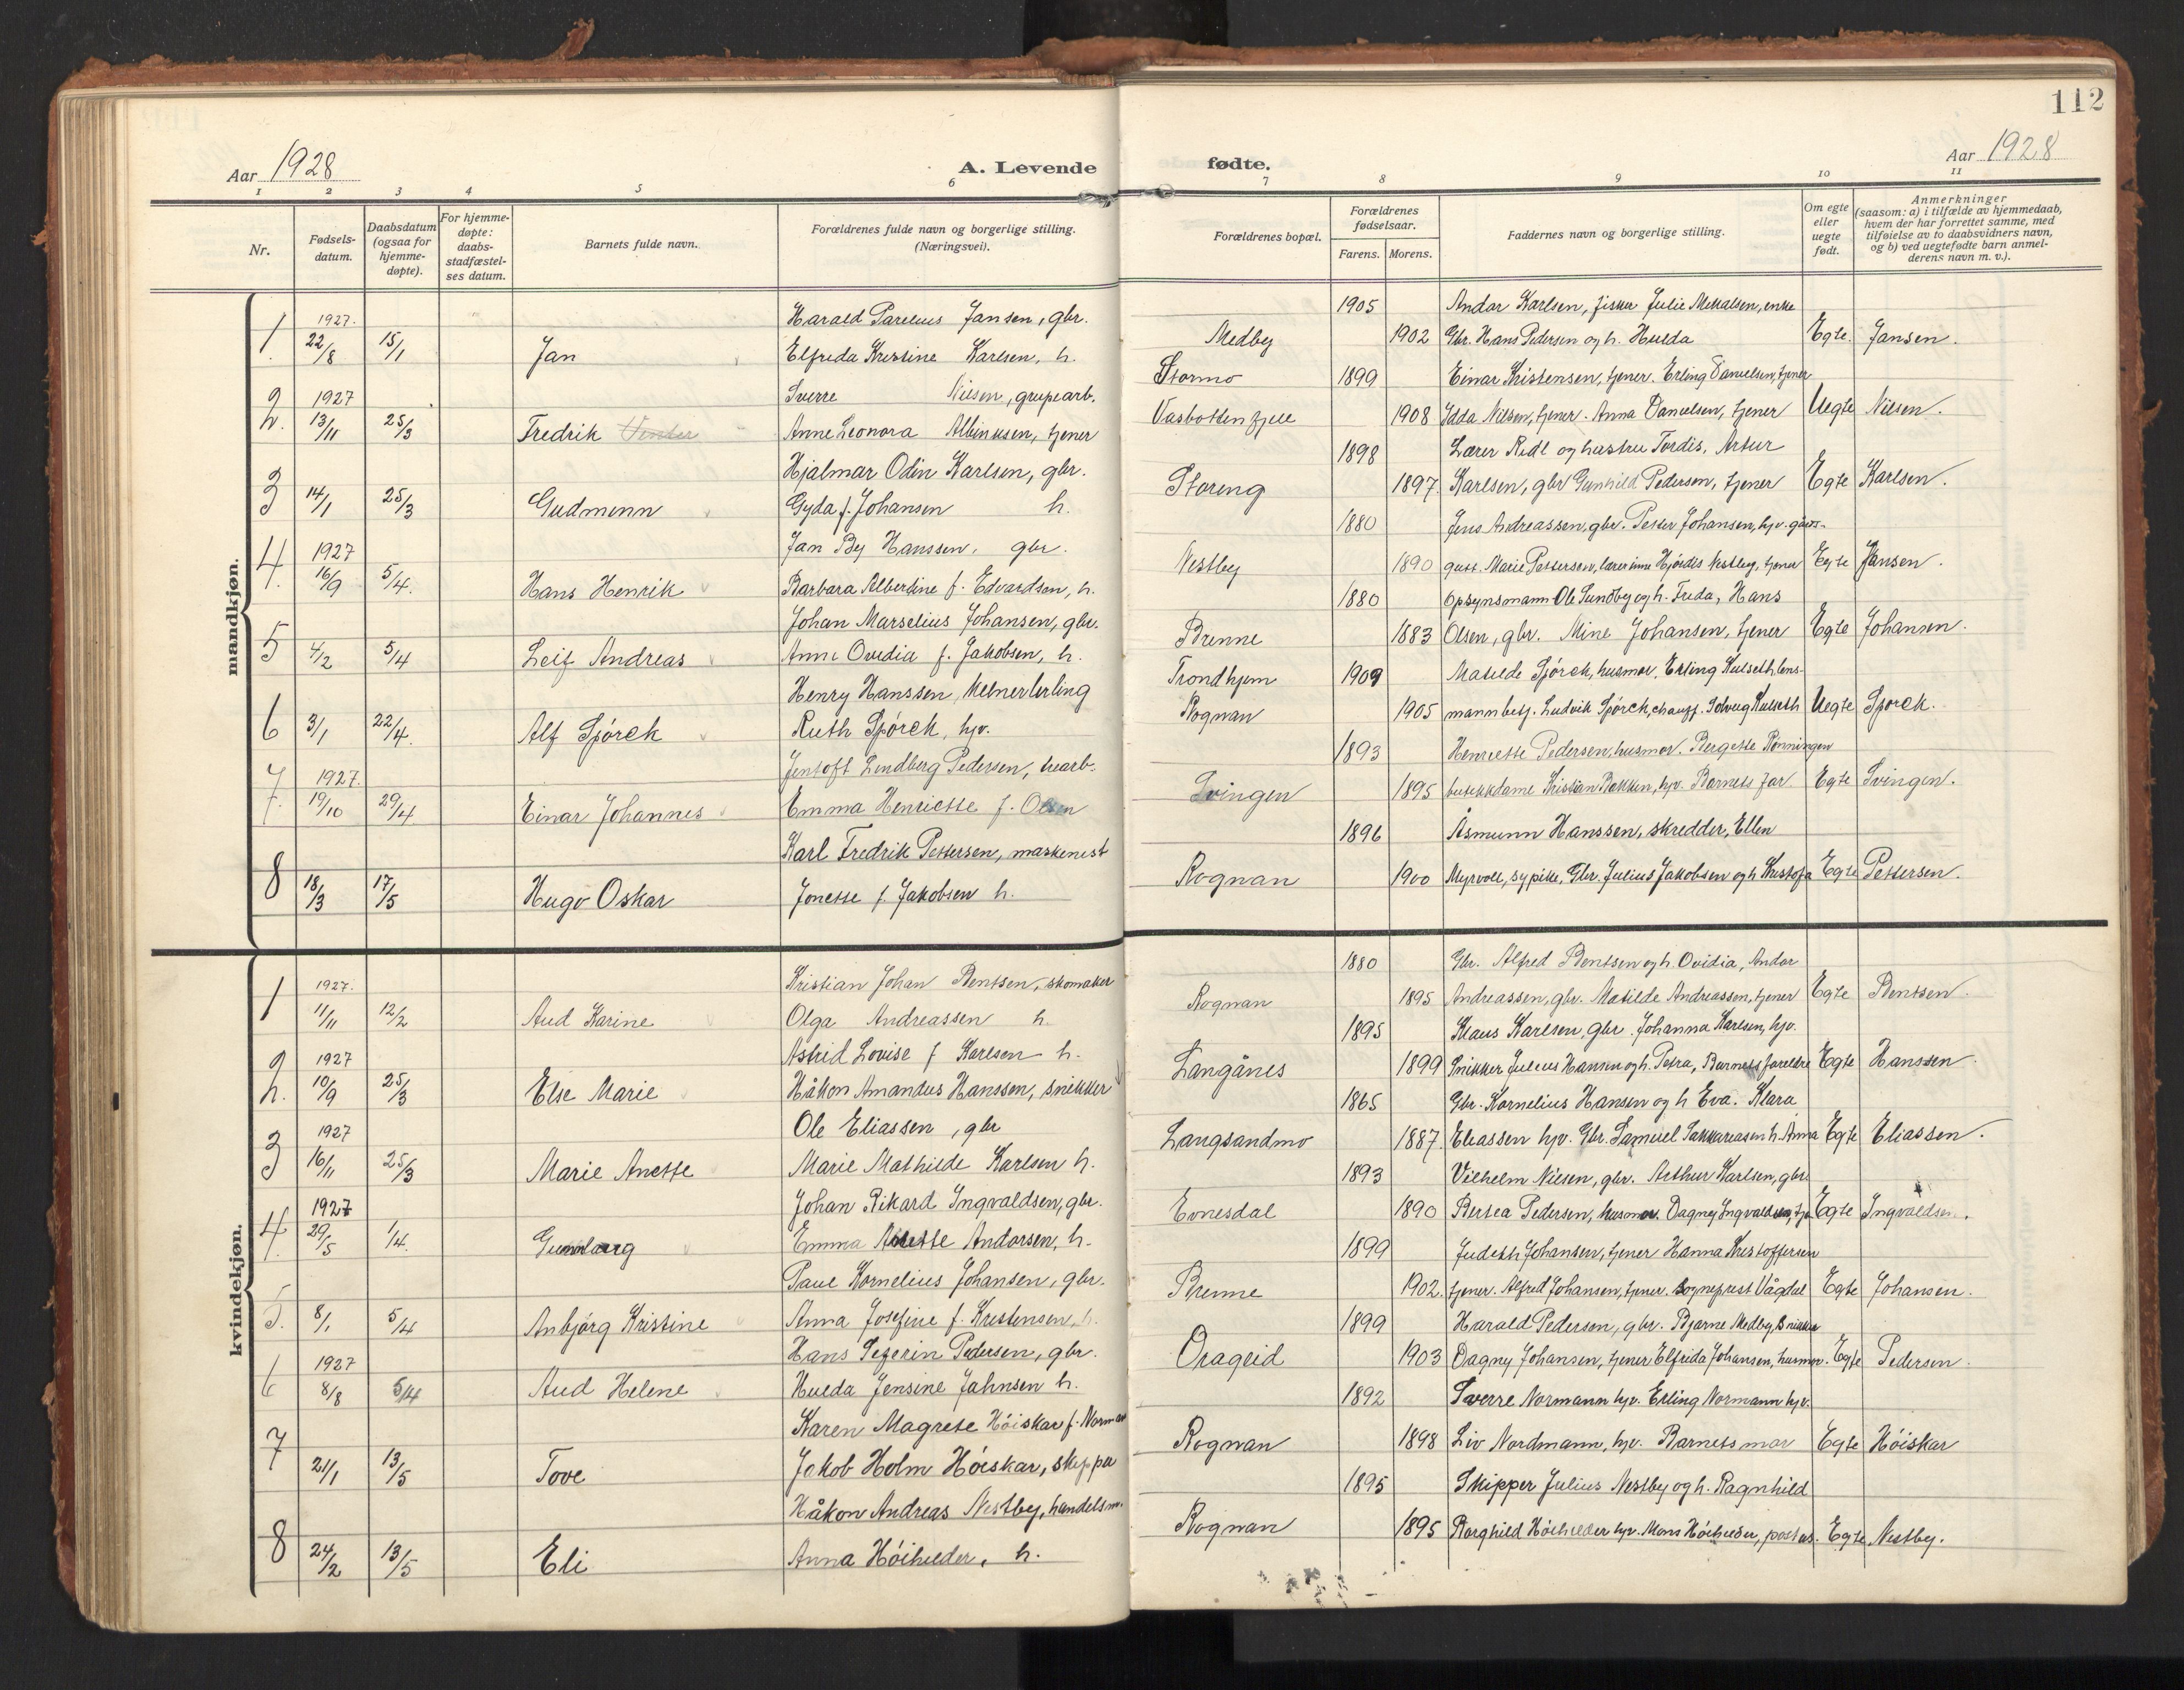 112
Aar 1928
A. Levende fødte.
Aar 1928
1 2 3 4 5 6 7 8 9 10 11
Nr.
Fødsels-
datum.
Daabsdatum
(ogsaa for
hjemme-
døpte).
For hjemme-
døpte:
daabs-
stadfæstel-
ses datum.
Barnets fulde navn.
Forældrenes fulde navn og borgerlige stilling.
(Næringsvei).
Forældrenes bopæl.
Forældrenes
fødselsaar.
Farens. Morens.
Faddernes navn og borgerlige stilling.
Om egte
eller
uegte
født.
Anmerkninger
(saasom: a) i tilfælde av hjemmedaab,
hvem der har forrettet samme, med
tilføielse av to daabsvidners navn,
og b) ved uegtefødte barn anmel-
derens navn m. v.).
mandkjøn.
1927. Harald Parelius Jansen, gbr. 1905 Andor Karlsen, fisker Julie Mikalsen, enke
1. 22/8 15/1 Jan Elfrida Kristine Karlsen, h. Medby 1902 Gbr. Hans Pedersen og h. Hulda Egte. Jansen.
1927 Sverre Nilsen, grupearb. Stormo 1899 Einar Kristensen, tjener. Erling Danielsen, tjener
2. 13/11 25/3 Fredrik Anne Leonora Albinusen, tjener Vasbottenfjell 1908 Edda Nilsen, tjener. Anna Danielsen, tjener Uegte Nilsen.
Hjalmar Odin Karlsen, gbr. 1898 Lærer Redl og hustru Tordis, Artur
3 14/1 25/3 Gudmunn Gyda f. Johansen h. Storeng 1897. Karlsen, gbr Gunhild Pedersen, tjener Egte Karlsen.
1927 Jan By Hanssen, gbr. 1880 Jens Andreassen, gbr. Petter Johansen, hjv. gårds-
4. 16/9 5/4. Hans Henrik Barbara Albertine f. Edvardsen, h. Nestby 1890 gutt. Marie Pettersen, lærerinne Hjørdis Nestby, tjener Egte Jansen.
Johan Marselius Johansen, gbr. 1880 Opsynsmann Ole Sundby og h. Freda, Hans
5 4/2 5/4 Leif Andreas Anne Ovidia f. Jakobsen, h. Brenne 1883 Olsen, gbr. Mine Johansen, tjener Egte Johansen.
Henry Hanssen, Trondhjem 1909 Matilde Spörck, husmor, Erling Kulseth lens-
6 3/1 22/4. Alf Spörck Ruth Spörck, hjv. Rognan 1905 mannbetj. Ludvik Spörck, chauff. Solveig Kulseth Uegte Sporck.
1927. Jentoft Lindberg Pedersen, trearb. 1893 Henriette Pedersen, husmor. Bergette Rönningen
7. 19/10 29/4. Einar Johannes Emma Henriette f. Olsen Svingen 1895 butikkdame Kristian Bakken, hjv. Barnets far Egte Svingen.
Karl Fredrik Pettersen, maskenist 1896 Asmunn Hanssen, skredder, Ellen
8 18/3 17/5 Hugo Oskar Jonette f. Jakobsen h. Rognan 1900 Myrvoll, sypike, Gbr. Julius Jakobsen og h Kristofa Egte Pettersen.
kvindekjøn.
1927. Kristian Johan Bentsen, skomaker 1880 Gbr. Alfred Bentsen og h. Ovidia, Andor
1 11/11 12/2 Aud Karine Olga Andreassen h. Rognan 1895 Andreassen, gbr. Matilde Andreassen, tjener Egte Bentsen.
1927 Astrid Lovise f Karlsen h. 1895 Klaus Karlsen, gbr. Johanna Karlsen, hjv.
2. 10/9 25/3 Else Marie Håkon Amandus Hanssen, snekker Langånes 1899 Snikker Julius Hansen og h. Petra, Barnets foreldre Egte Hanssen.
1927 Ole Eliassen, gbr 1865 Gbr. Kornelius Hansen og h Eva. Klara
3 16/11 25/3 Marie Anette Marie Mathilde Karlsen h. Langsandmo 1887. Eliassen hjv. Gbr. Samuel Sakkariasen h. Anna Egte Eliassen.
1927 Johan Rikard Ingvaldsen, gbr. 1893 Vilhelm Nilsen, gbr. Arthur Karlsen, gbr.
4. 29/5 1/4. Gunnlaug Emma Andorsen, h. Evnesdal 1890 Bertea Pedersen, husmor. Dagny Ingvaldsen, tje. Egte Ingvaldsen.
Paul Kornelius Johansen, gbr. 1899 Judith Johansen, tjener Hanna Kristoffersen
5. 8/1 5/4 Anbjörg Kristine Anna Josefine f. Kristensen, h. Brenne 1902. tjener. Alfred Johansen, tjener. Sogneprest Vågdal Egte Johansen.
1927 Hans Segerin Pedersen, gbr. 1899 Harald Pedersen, gbr. Bjarne Medby, snikker
6 8/8 5/4 Aud Helene Hulda Jensine Jahnsen h. Drageid 1903 Dagny Johansen, tjener Elfrida Johansen, husmor. Egte Pedersen.
Karen Magrete Höiskar f. Norman 1892 Sverre Normann hjv. Erling Normann hjv.
7 21/1 13/5 Tove Jakob Holm Höiskar, skipper Rognan 1898 Liv Nordmann, hjv. Barnets mor Egte Höiskar
Håkon Andreas Nestby, handelsm. 1895 Skipper Julius Nestby og h. Ragnhild
8 24/2 13/5 Eli Anna Höihilder, h. Rognan 1895 Borghild Höihilder hjv. Mons Höihilder, postas. Egte Nestby.